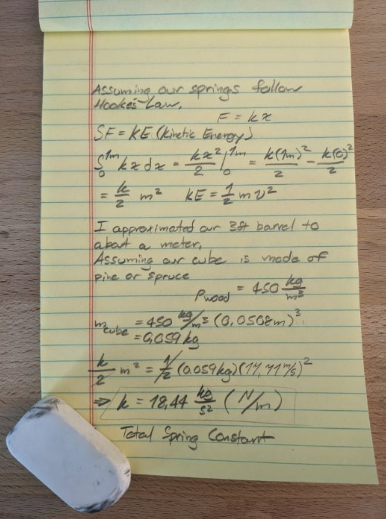 Assuming our springs follow
Hooke's Law,
F = kx
SF = KE (Kinetic Energy)
∫₀¹ᵐ kx dx = kx²/2 |₀¹ᵐ = k(1m)²/2 - k(0)²/2
= k/2 m² KE = 1/2 m v²
I approximated our 3ft barrel to
about a meter,
Assuming our cube is made of
pine or spruce
ρwood = 450 kg/m³
mcube = 450 kg/m³ (0,0508m)³
= 0,059 kg
k/2 m² = 1/2 (0.059kg)(17,71 m/s)²
⇒ k = 18,44 kg/s² (N/m)
Total Spring Constant